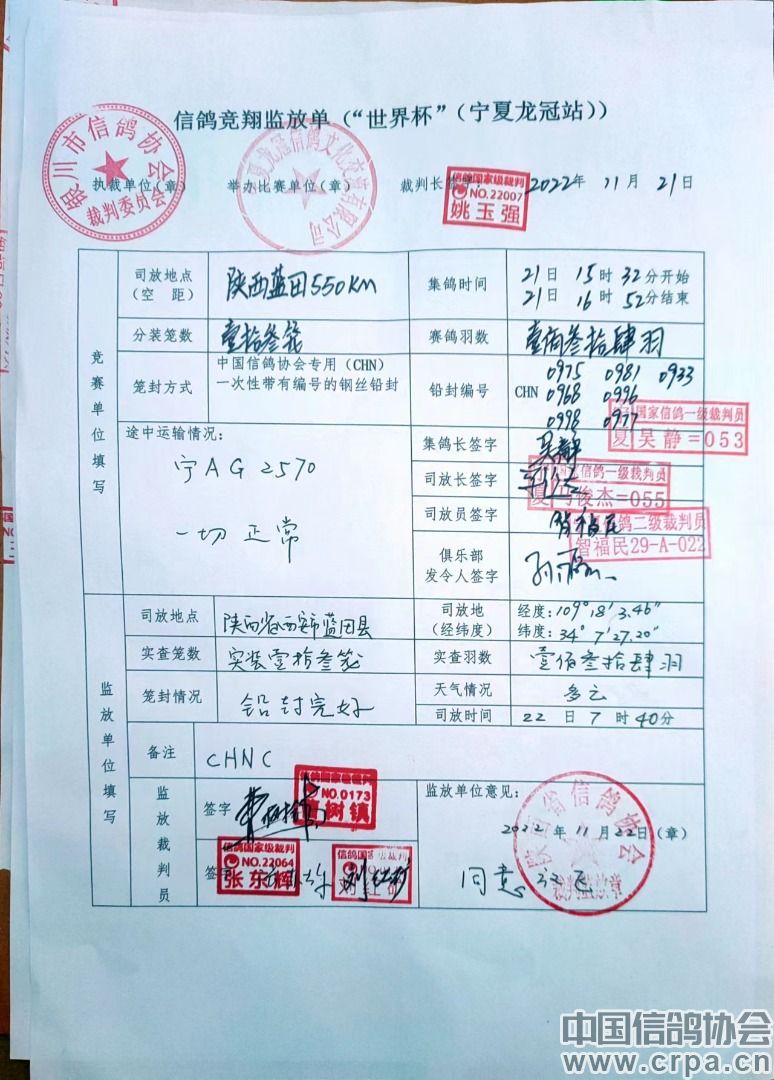 信鸽竞翔监放单（“世界杯”（宁夏龙冠站））
银川市信鸽协会
裁判委员会
执裁单位（章） 举办比赛单位（章） 裁判长签字： 2022年 11月 21日
夏龙冠信鸽文化 有限公司
信鸽国家级裁判
NO.22007
姚玉强
竞赛单位填写
司放地点（空 距） 陕西蓝田550KM 集鸽时间 21日 15时 32分开始
21日 16时 52分结束
分装笼数 壹拾叁笼 赛鸽羽数 壹佰叁拾肆羽
笼封方式 中国信鸽协会专用（CHN）
一次性带有编号的钢丝铅封
铅封编号 CHN 0975 0981 0933
0968 0996
0998 0977
途中运输情况：
宁AG2570
一切正常
集鸽长签字 吴静
国家信鸽一级裁判员
夏吴静=053
司放长签字
信鸽一级裁判员
夏马俊杰=055
司放员签字 智福民
信鸽二级裁判员
智福民29-A-022
俱乐部
发令人签字
监放单位填写
司放地点 陕西省西安市蓝田县 司放地（经纬度） 经度：109°18′3.46″
纬度：34°7′27.20″
实查笼数 实装壹拾叁笼 实查羽数 壹佰叁拾肆羽
笼封情况 铅封完好 天气情况 多云
司放时间 22日7时40分
备注 CHNC
监放裁判员
签字
信鸽国家级裁判
NO.0173
树镇
签字
信鸽国家级裁判
NO.22064
张东辉
信鸽国家级裁判
监放单位意见：
2022年11月22日（章）
同意
陕西省信鸽协会
中国信鸽协会
www.crpa.cn